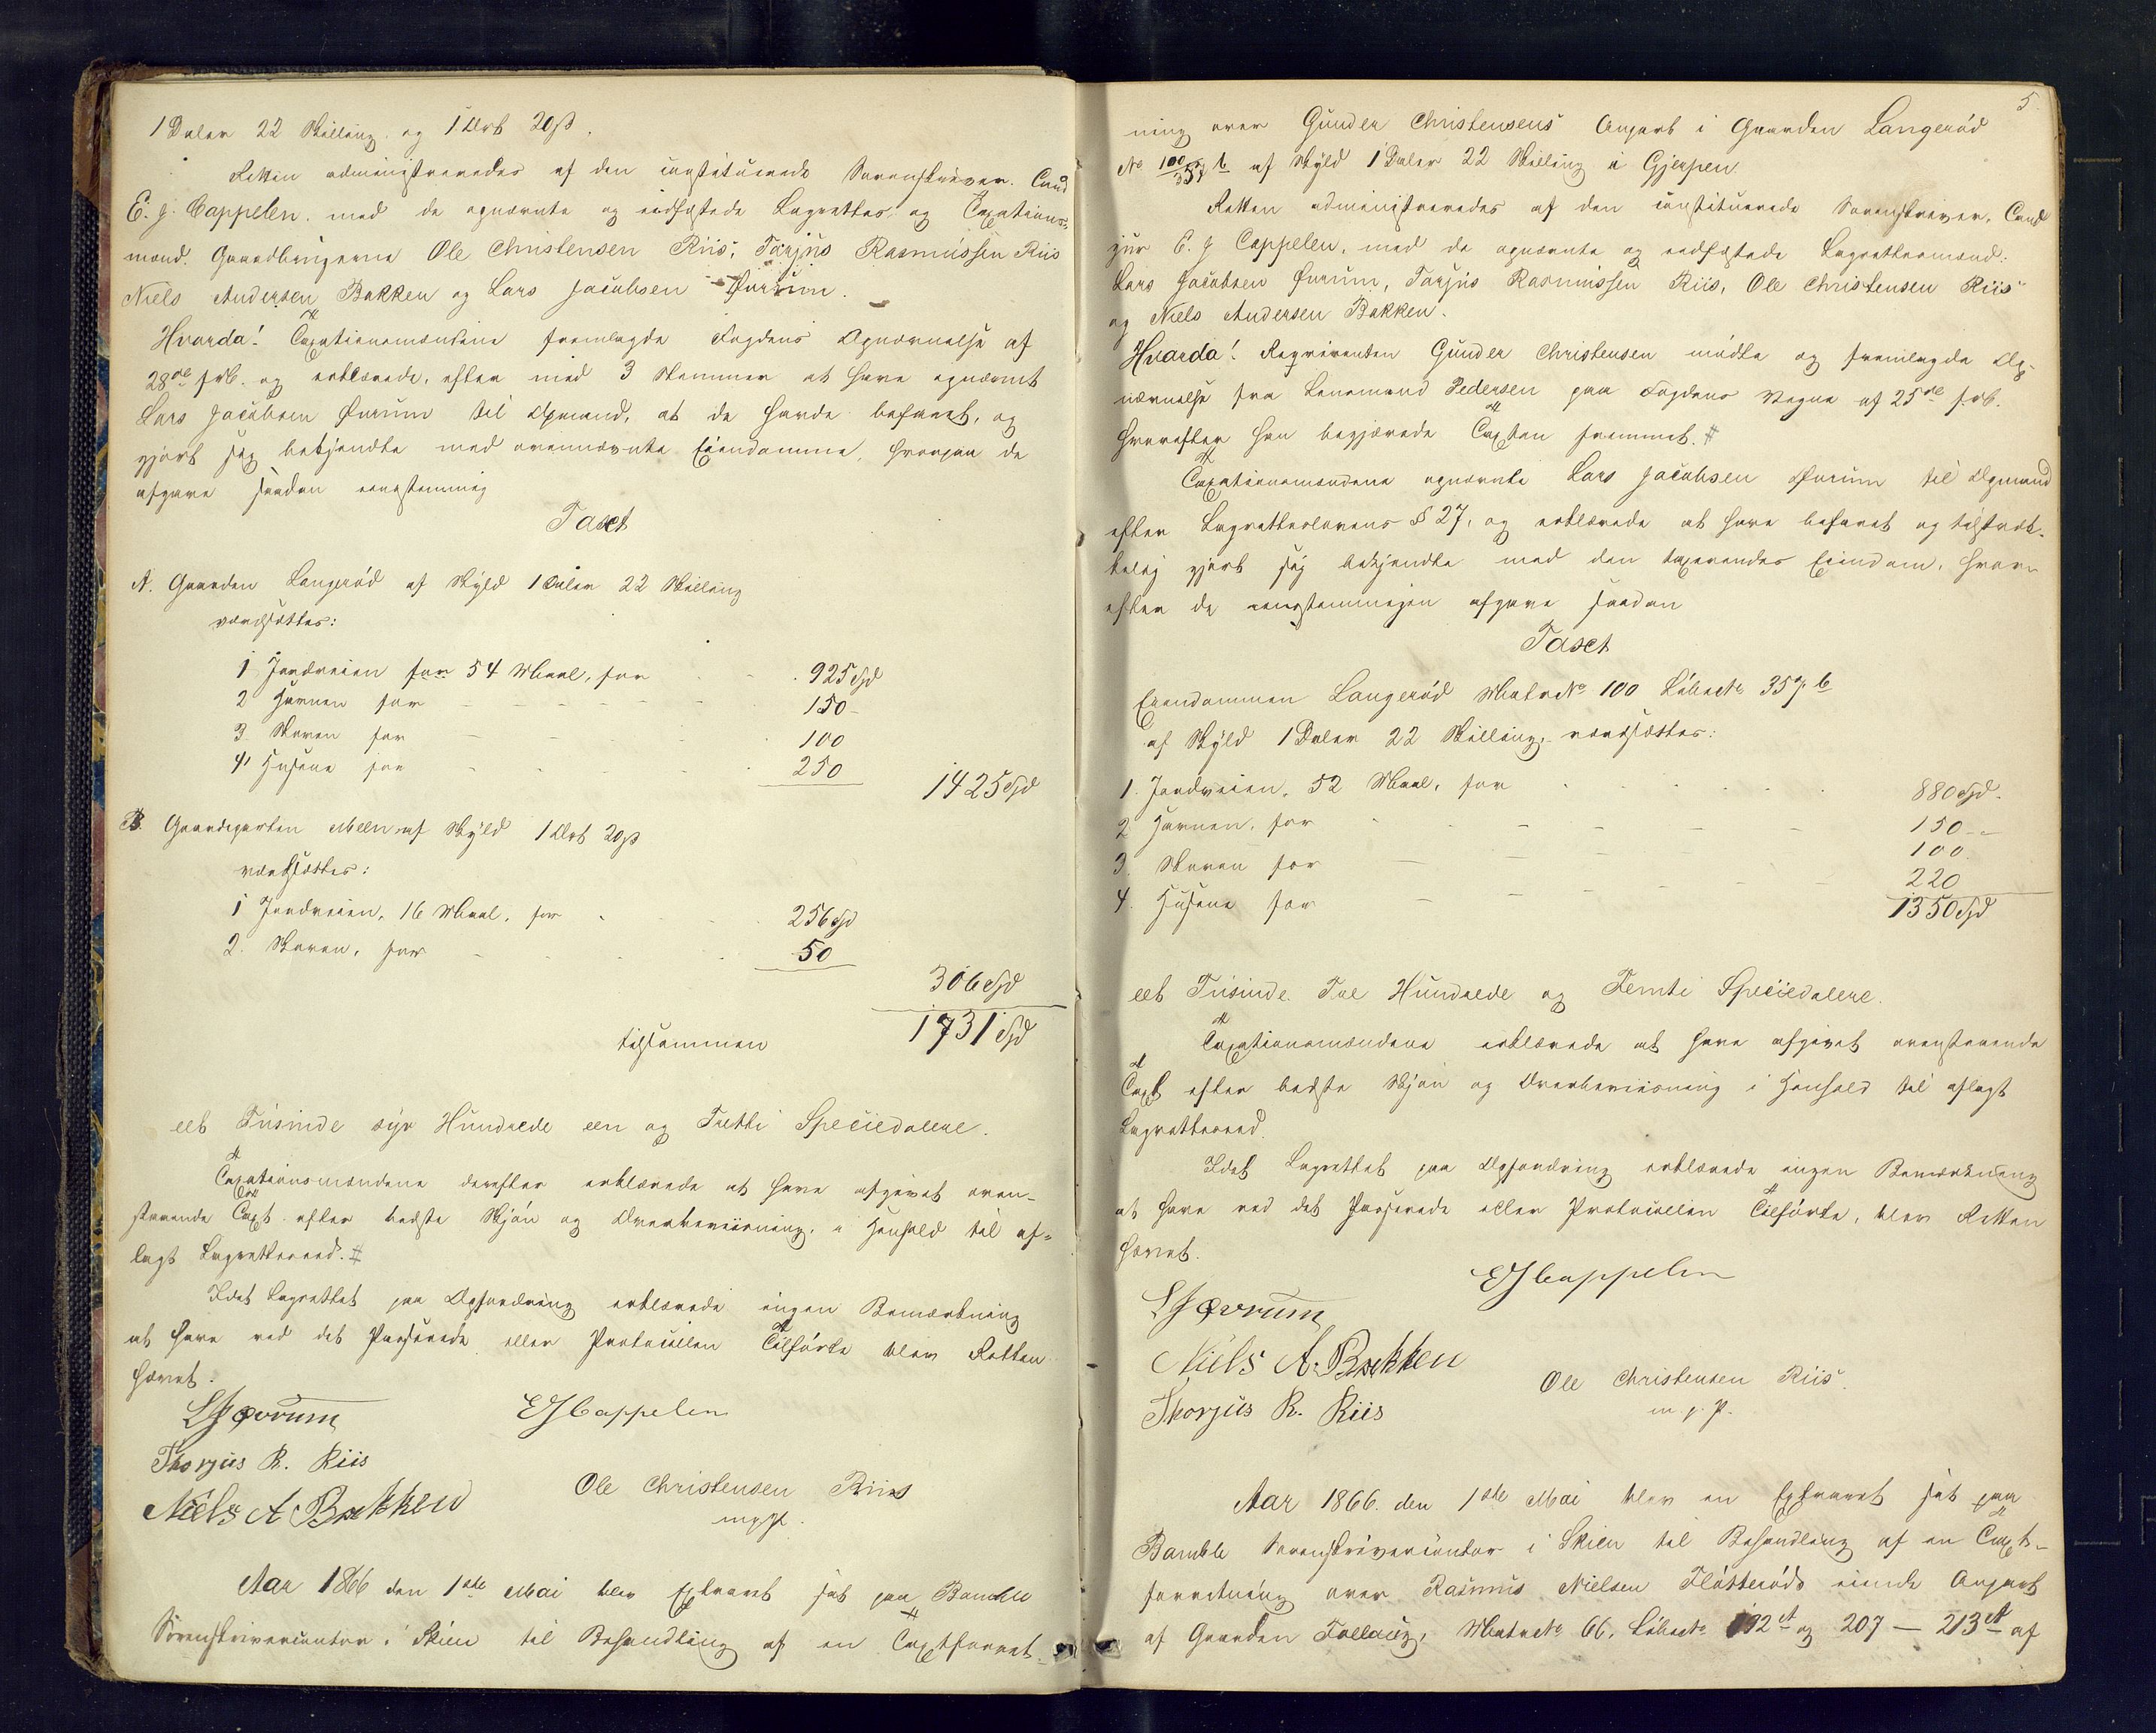 1 Daler 22 Skilling og 1 Ort 20 ß.
Retten administreredes af den constituerede Sorenskriver Cand
E. J. Cappelen med de opnævnte og eedfæstede Lagrettes og Taxations-
mænd. Gaardbrugerne Ole Christensen Riis, Tarjus Rasmussen Riis
Niels Andersen Bakken og Lars Jacobsen Øvrum.
Hvorda! Taxationsmændene fremlagde Fogdens Opnævnelse af
28de feb. og erklærede, efter med 3 Stemmer at have opnævnt
Lars Jacobsen Øvrum til Opmand, at de havde befaret, og
gjort sig bekjendte med ovennævnte Eiendomme, hvorpaa de
afgave saadan eenstemmig
Taxt
A. Gaarden Langerød af Skyld 1 Daler 22 Skilling
værdsættes:
1 Jordveien for 54 Maal, for 925 Spd
2 Havnen for 150
3. Skoven for 100
4. Husene for 250 1425 Spd
B. Gaardeparten Meen af Skyld 1 Ort 20 ß
værdsættes:
1 Jordveien, 16 Maal, for 256 Spd
2. Skoven, for 50
306 Spd
tilsammen 1731 Spd
eet Tusinde syv Hundrede een og Tretti Speciedalere.
Taxationsmændene derefter erklærede at have afgivet oven-
staaende Taxt efter bedste Skjøn og Overbeviisning, i Henhold til af-
lagt Lagretteseed.
Idet Lagrettet paa Opfordring erklærede ingen Bemærkning
at have ved det Passerede eller Protocollen Tilførte blev Retten
hævet.
LJ Øvrum EJ Cappelen
Thorjus R. Riis
Niels A Bakken Ole Christensen Riis
m p p.
Aar 1866 den 1ste Mai blev Extraret sat paa Bamble
Sorenskrivercontor i Skien til Behandling af en Taxtforret-
5.
ning over Gunder Christensens Anpart i Gaarden Langerød
No 100/357 b af Skyld 1 Daler 22 Skilling i Gjerpen
Retten administreredes af den constituerede Sorenskriver, Cand
jur E. J Cappelen, med de opnævnte og eedfæstede Lagrettesmænd:
Lars Jacobsen Øvrum, Tarjus Rasmussen Riis, Ole Christensen Riis
og Niels Andersen Bakken.
Hvorda! Reqvirenten Gunder Christensen mødte og fremlagde Op-
nævnelse fra Lensmand Pedersen paa Fogdens Vegne af 25de feb.
hvorefter han begjærede Taxten fremmet.
Taxationsmændene opnævnte Lars Jacobsen Øvrum til Opmand
efter Lagretteslovens § 27, og erklærede at have befaret og tilstræk-
kelig gjort sig bekjendte med den taxerendes Eiendom, hvor-
efter de eenstemmigen afgave saadan
Taxt
Eiendommen Langerød Matr No 100 Løbe No 357 b
af Skyld 1 Daler 22 Skilling, værdsættes:
1. Jordveien, 52 Maal, for 880 Spd.
2 Havnen, for 150
3. Skoven for 100
4. Husene for 220
1350 Spd
eet Tusinde Tre Hundrede og Femti Speciedalere.
Taxationsmændene erklærede at have afgivet ovenstaaende
Taxt efter bedste Skjøn og Overbeviisning i Henhold til aflagt
Lagretteseed.
Idet Lagrettet paa Opfordring erklærede ingen Bemærkning
at have ved det Passerede eller Protocollen Tilførte, blev Retten
hævet.
EJ Cappelen
LJ Øvrum
Niels A. Bakken
Ole Christensen Riis
Thorjus R. Riis m. p. p.
Aar 1866. den 1ste Mai blev en Extraret sat paa
Bamble Sorenskrivercontor i Skien til Behandling af en Taxt-
forretning over Rasmus Nielsen Fløtterøds eiende Anpart
af Gaarden Follaug, Matr No 66, Løbe No 192 a og 207 — 213 a af